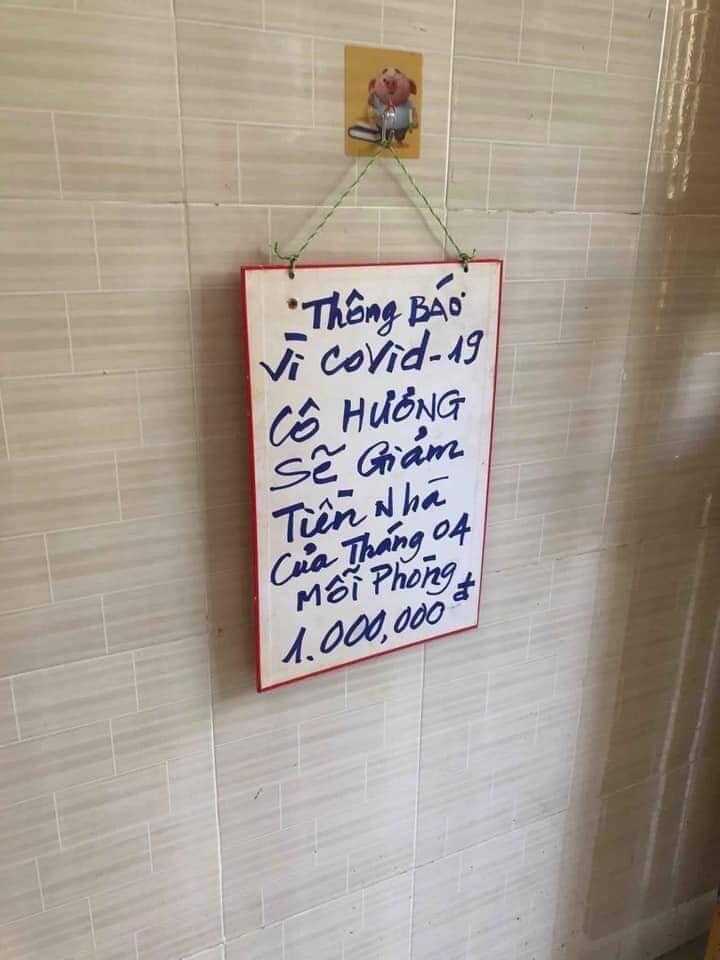 Thông BÁO
Vì COVID-19
CÔ HƯỜNG
Sẽ Giảm
Tiền Nhà
Của Tháng 04
Mỗi Phòng
1.000,000 đ